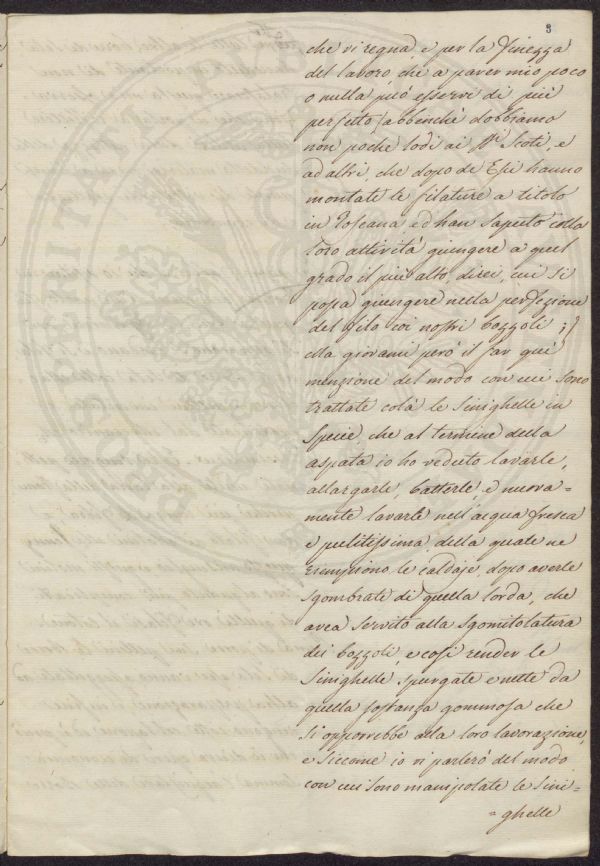 3
che vi regna e per la finezza
del lavoro, che a parer mio poco
o nulla può esservi di più
perfetto (abbenchè dobbiamo
non poche lodi ai Sri Scoti, e
ad altri, che dopo de Essi hanno
montate le filature a titolo
in Toscana, ed han saputo colla
loro attività giungere a quel
grado il più alto, direi, cui si
possa giungere nella perfezione
del filo coi nostri bozzoli ;)
Ma giovami però il far quì
menzione del modo con cui sono
trattate colà le Sinighelle in
Specie, che al termine della
aspata io ho veduto lavarle,
allargarle, batterle, e nuova=
mente lavarle nell'acqua fresca
e pulitissima, della quale ne
riempiono le caldaje, dopo averle
sgombrate di quella lorda, che
avea servito alla sgomitolatura
dei bozzoli, e così render le
Sinighelle spurgate e nette da
quella sostanza gommosa che
si opporrebbe alla loro lavorazione,
e siccome io vi parlerò del modo
con cui sono manipolate le Sini=
=ghelle
PROSPERITAS PVB